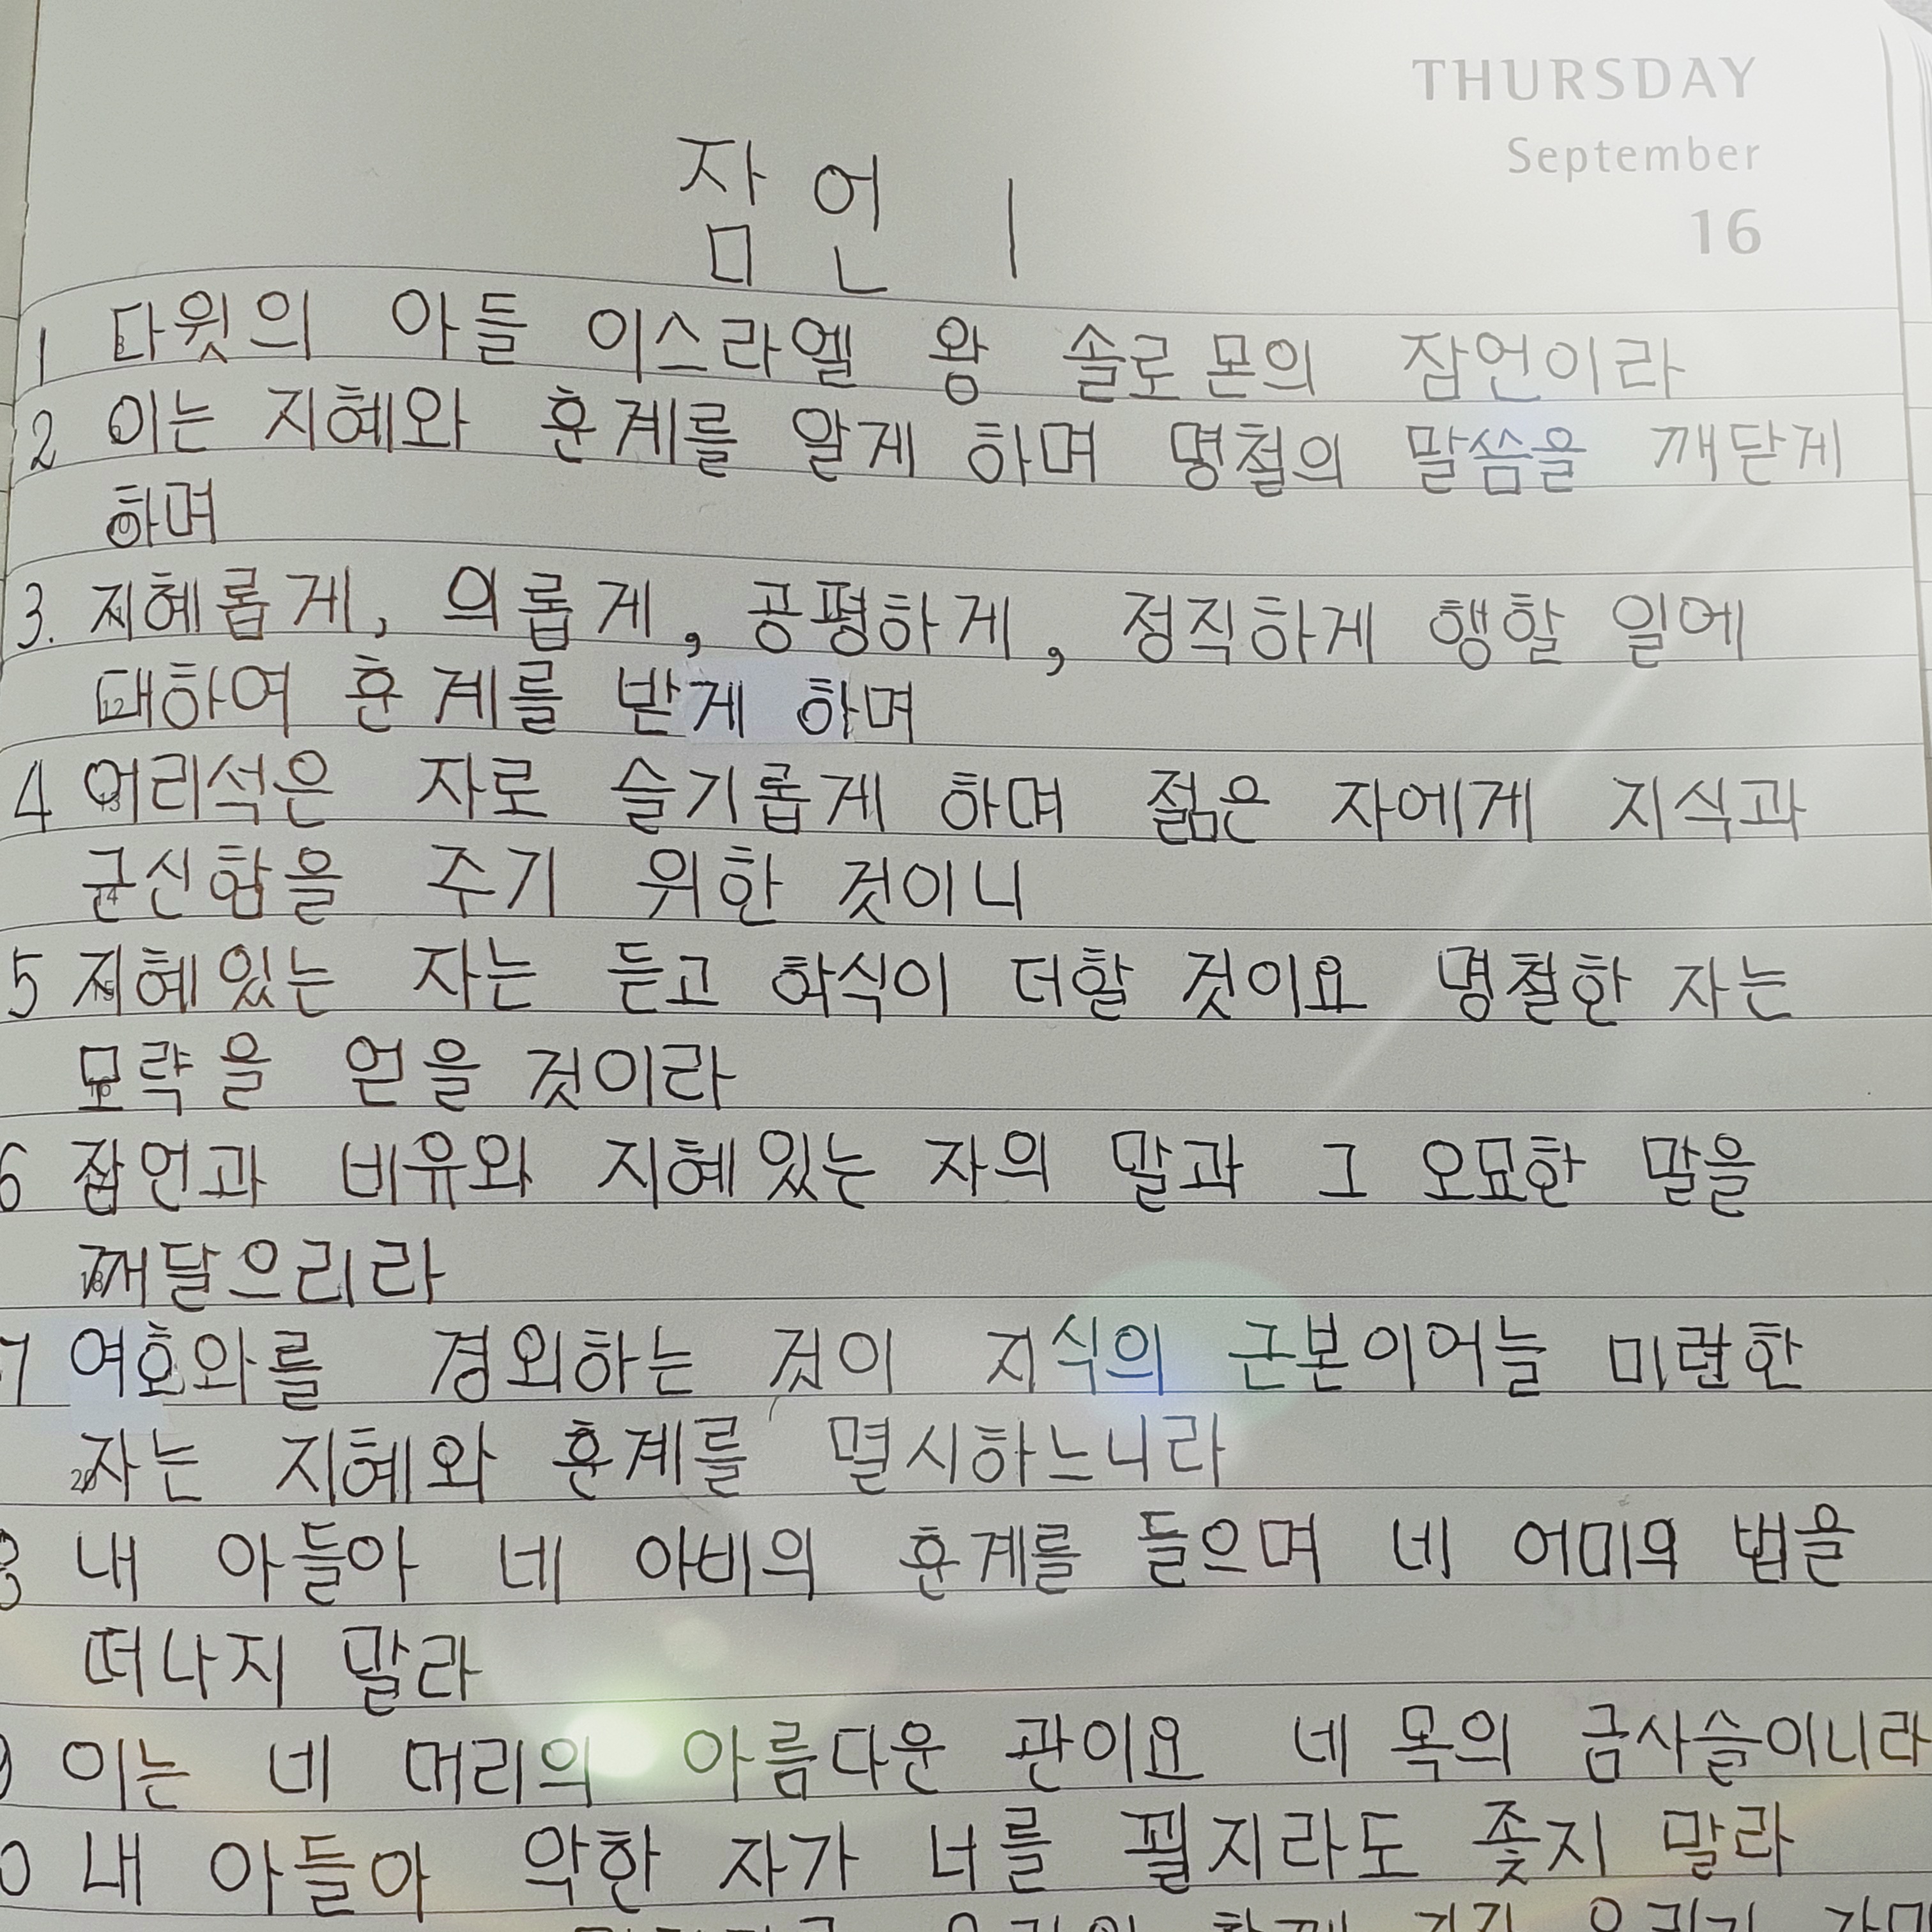 THURSDAY
September
16
잠언 1
1 다윗의 아들 이스라엘 왕 솔로몬의 잠언이라
2 이는 지혜와 훈계를 알게 하며 명철의 말씀을 깨닫게
하며
3. 지혜롭게, 의롭게, 공평하게, 정직하게 행할 일에
대하여 훈계를 받게 하며
4 어리석은 자로 슬기롭게 하며 젊은 자에게 지식과
근신함을 주기 위한 것이니
5 지혜있는 자는 듣고 학식이 더할 것이요 명철한 자는
모략을 얻을 것이라
6 잠언과 비유와 지혜있는 자의 말과 그 오묘한 말을
깨달으리라
7 여호와를 경외하는 것이 지식의 근본이어늘 미련한
자는 지혜와 훈계를 멸시하느니라
8 내 아들아 네 아비의 훈계를 들으며 네 어미의 법을
떠나지 말라
이는 네 머리의 아름다운 관이요 네 목의 금사슬이니라
0 내 아들아 악한 자가 너를 꾈지라도 좇지 말라